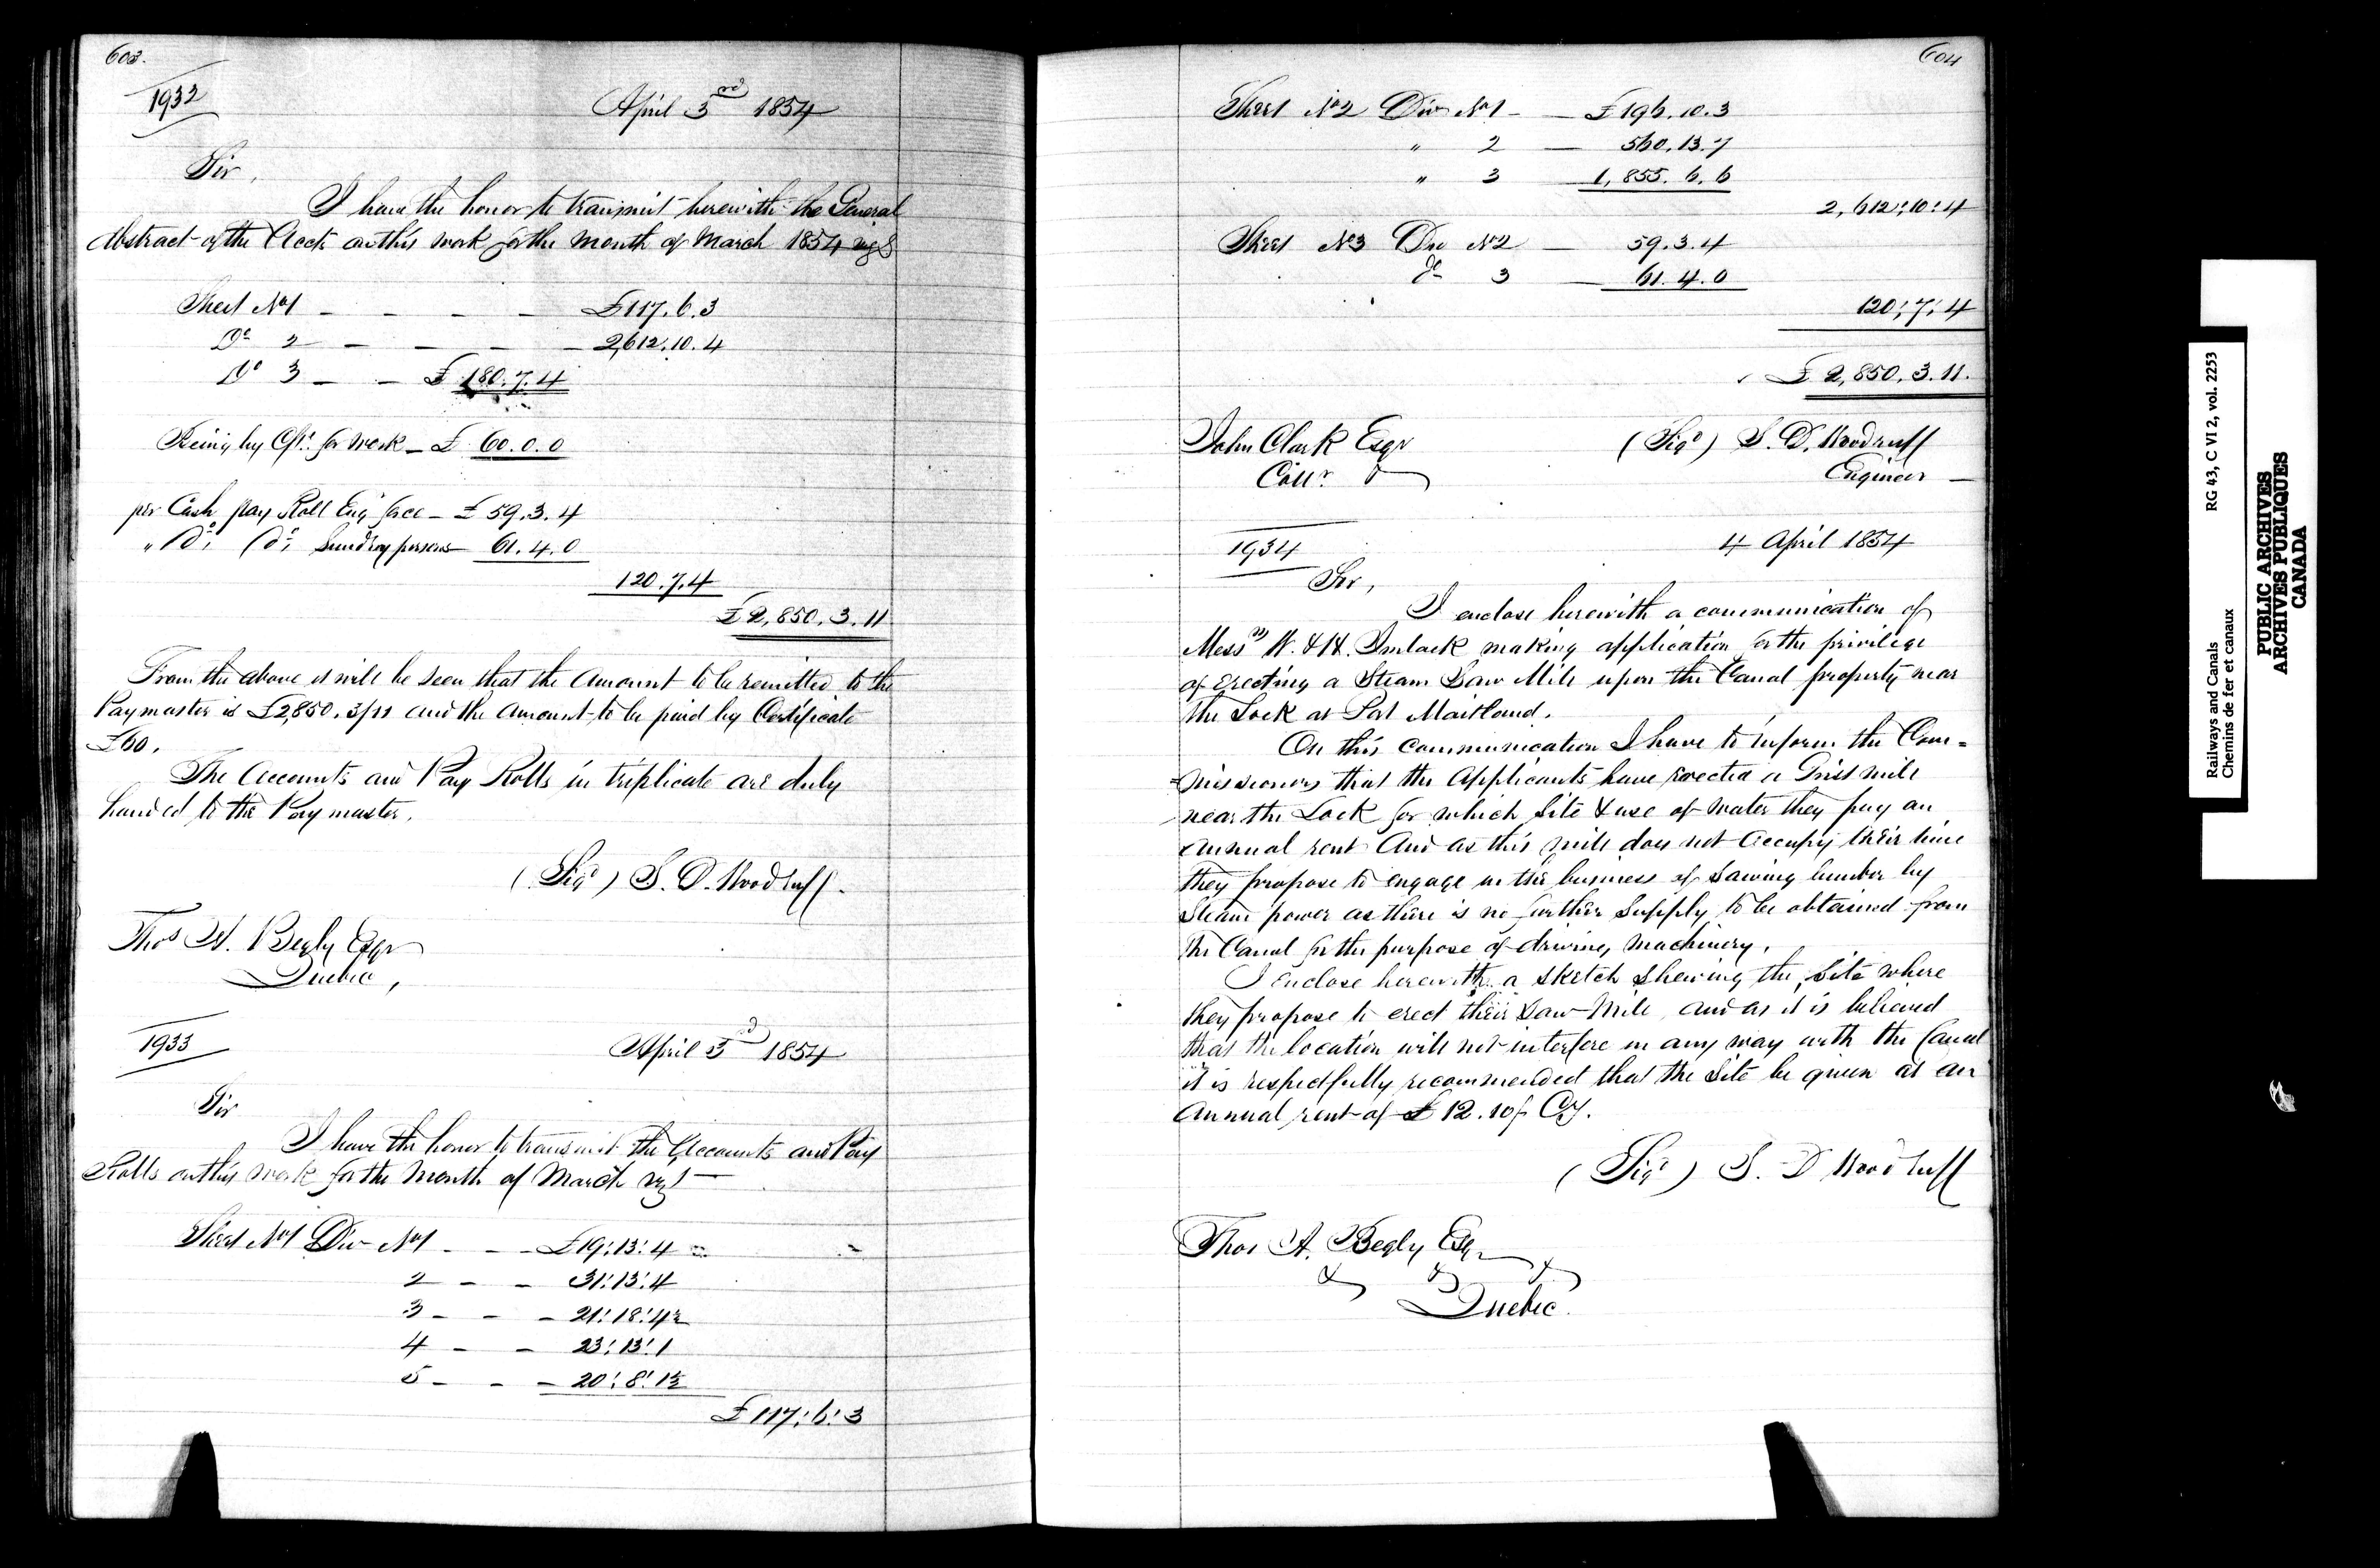 603.
1932
April 3rd 1854
Sir,
I have the honor to transmit herewith the General
Abstract of the Accts on this work for the Month of March 1854 viz
Sheet No 1 - - - - £117.6.3
Do 2 - - - - 2,612.10.4
Do 3 - - £ 180.7.4
Being by Cft. for Work - £ 60.0.0
per Cash pay Roll Eng force - £ 59.3.4
" Do; Do; Sundry persons - 61.4.0
120.7.4
£2,850.3.11
From the above it will be seen that the Amount to be remitted to the
Paymaster is £2,850.3/11 and the Amount to be paid by Certificate
£60.
The Accounts and Pay Rolls in triplicate are duly
handed to the Paymaster.
(Sigd) S. D. Woodruff.
Thos A. Begly Esqr
Quebec,
1933
April 3rd 1854
Sir
I have the honor to transmit the Accounts and Pay
Rolls on this work for the Month of March viz -
Sheet No 1 Div No 1 - - - £19:13:4
2 - - 31:13:4
3 - - - 21:18:4½
4 - - 23:13:1
5 - - - 20:8:1½
£117:6:3
604
Sheet No 2 Div No 1 - - £196.10.3
" 2 - 560.13.7
" 3 - 1,855.6.6
2,612:10:4
Sheet No 3 Div No 2 - 59.3.4
do 3 - 61.4.0
120:7:4
£2,850.3.11.
John Clark Esqr (Sigd) S. D. Woodruff
Collr. Engineer -
1934 4 April 1854
Sir,
I enclose herewith a communication of
Messrs W. & H. Imlack making application for the privilege
of Erecting a Steam Saw Mill upon the Canal property near
the Lock at Port Maitland.
On this communication I have to inform the Com=
=missioners that the Applicants have Erected a Grist mill
near the Lock for which Site & use of water they pay an
annual rent And as this mill does not Occupy their time
they propose to engage in the business of Sawing lumber by
Steam power as there is no further Supply to be obtained from
the Canal for the purpose of driving Machinery.
I Enclose herewith a sketch shewing the Site where
they propose to erect their Saw-Mill, and as it is believed
that the location will not interfere in any way with the Canal
it is respectfully recommended that the Site be given at an
Annual rent of £12.10/- Cy.
(Sigd) S. D Woodruff
Thos A. Begly Esqr
& & &
Quebec.
Railways and Canals RG 43, C VI 2, vol. 2253
Chemins de fer et canaux
PUBLIC ARCHIVES
ARCHIVES PUBLIQUES
CANADA